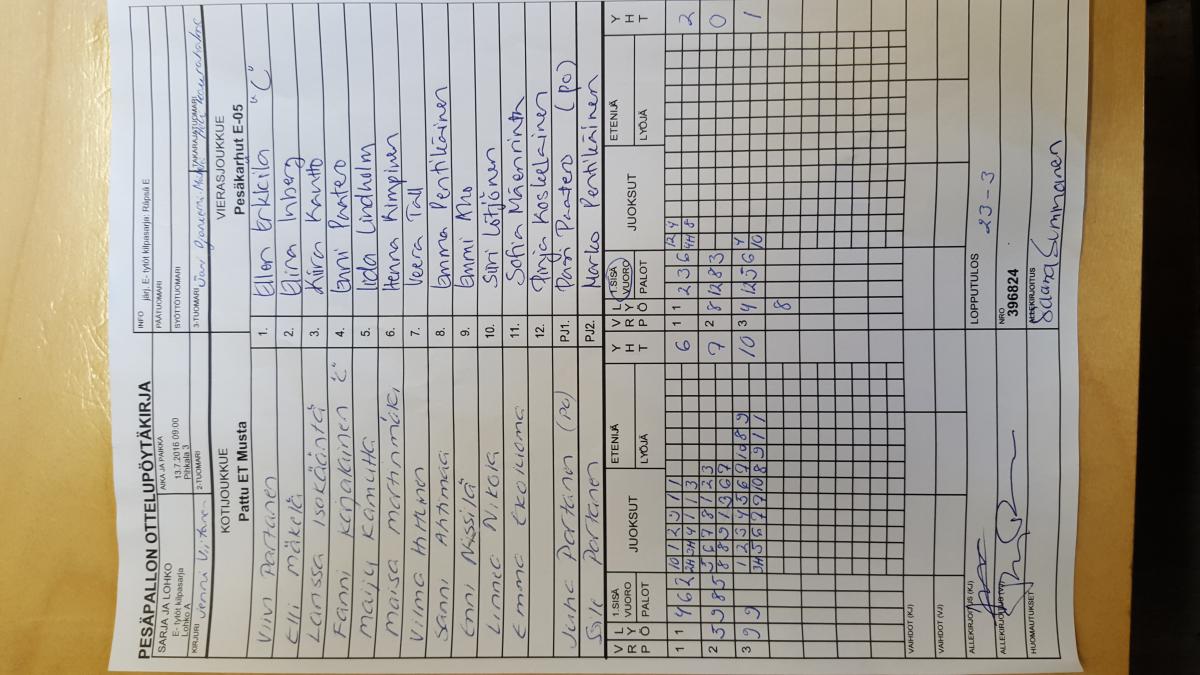 PESÄPALLON OTTELUPÖYTÄKIRJA
SARJA JA LOHKO
E- tytöt kilpasarja
Lohko A
AIKA JA PAIKKA
13.7.2016 09:00
Pihkala 3
INFO järj. E- tytöt kilpasarja: Räpsä E
PÄÄTUOMARI
SYÖTTÖTUOMARI
KIRJURI Jenni
2-TUOMARI
3-TUOMARI
TAKARAJATUOMARI
KOTIJOUKKUE
Pattu ET Musta
VIERASJOUKKUE
Pesäkarhut E-05
Viivi Partanen 1. Ellen Erkkilä "C"
Elli Mäkelä 2. Elina Inberg
Larissa Isokääntä 3. Kiira Kautto
Fanni Karjalainen "C" 4. Enni Paatero
Maiju Kamutta 5. Iida Lindholm
Maisa Martinmäki 6. Henna Kimpinen
Vilma Huhtinen 7. Veera Tall
Sanni Ahtimaa 8. Emma Pentikäinen
Enni Nissilä 9. Emmi Aho
Linnea Nikola 10. Siiri Lötjönen
Emma 11. Sofia Mäenrinta
12. Anja Koskelainen
Juha Partanen (po) PJ1. Pasi Paatero (po)
Partanen PJ2. Marko Pentikäinen
V R P L Y Ö 1.SISÄ VUORO PALOT JUOKSUT ETENIJÄ LYÖJÄ Y H T V R P L Y Ö 1.SISÄ VUORO PALOT JUOKSUT ETENIJÄ LYÖJÄ Y H T
1 1 4 6 2 10 1 2 9 1 1 6 1 1 2 3 6 12 4 2
2H 3H 4 1 1 3 4H 8
2 5 9 8 5 5 6 7 8 1 2 3 7 2 8 12 8 3 0
8 8 9 1 3 6 7
3 9 9 1 2 3 4 5 6 7 10 8 9 10 3 4 12 5 6 4 1
3H 5 6 7 7 9 10 8 9 1 1 10
8
VAIHDOT (KJ)
VAIHDOT (VJ)
ALLEKIRJOITUS (KJ)
LOPPUTULOS 23-3
ALLEKIRJOITUS (VJ)
NRO
396824
HUOMAUTUKSET
ALLEKIRJOITUS
Saana Summanen